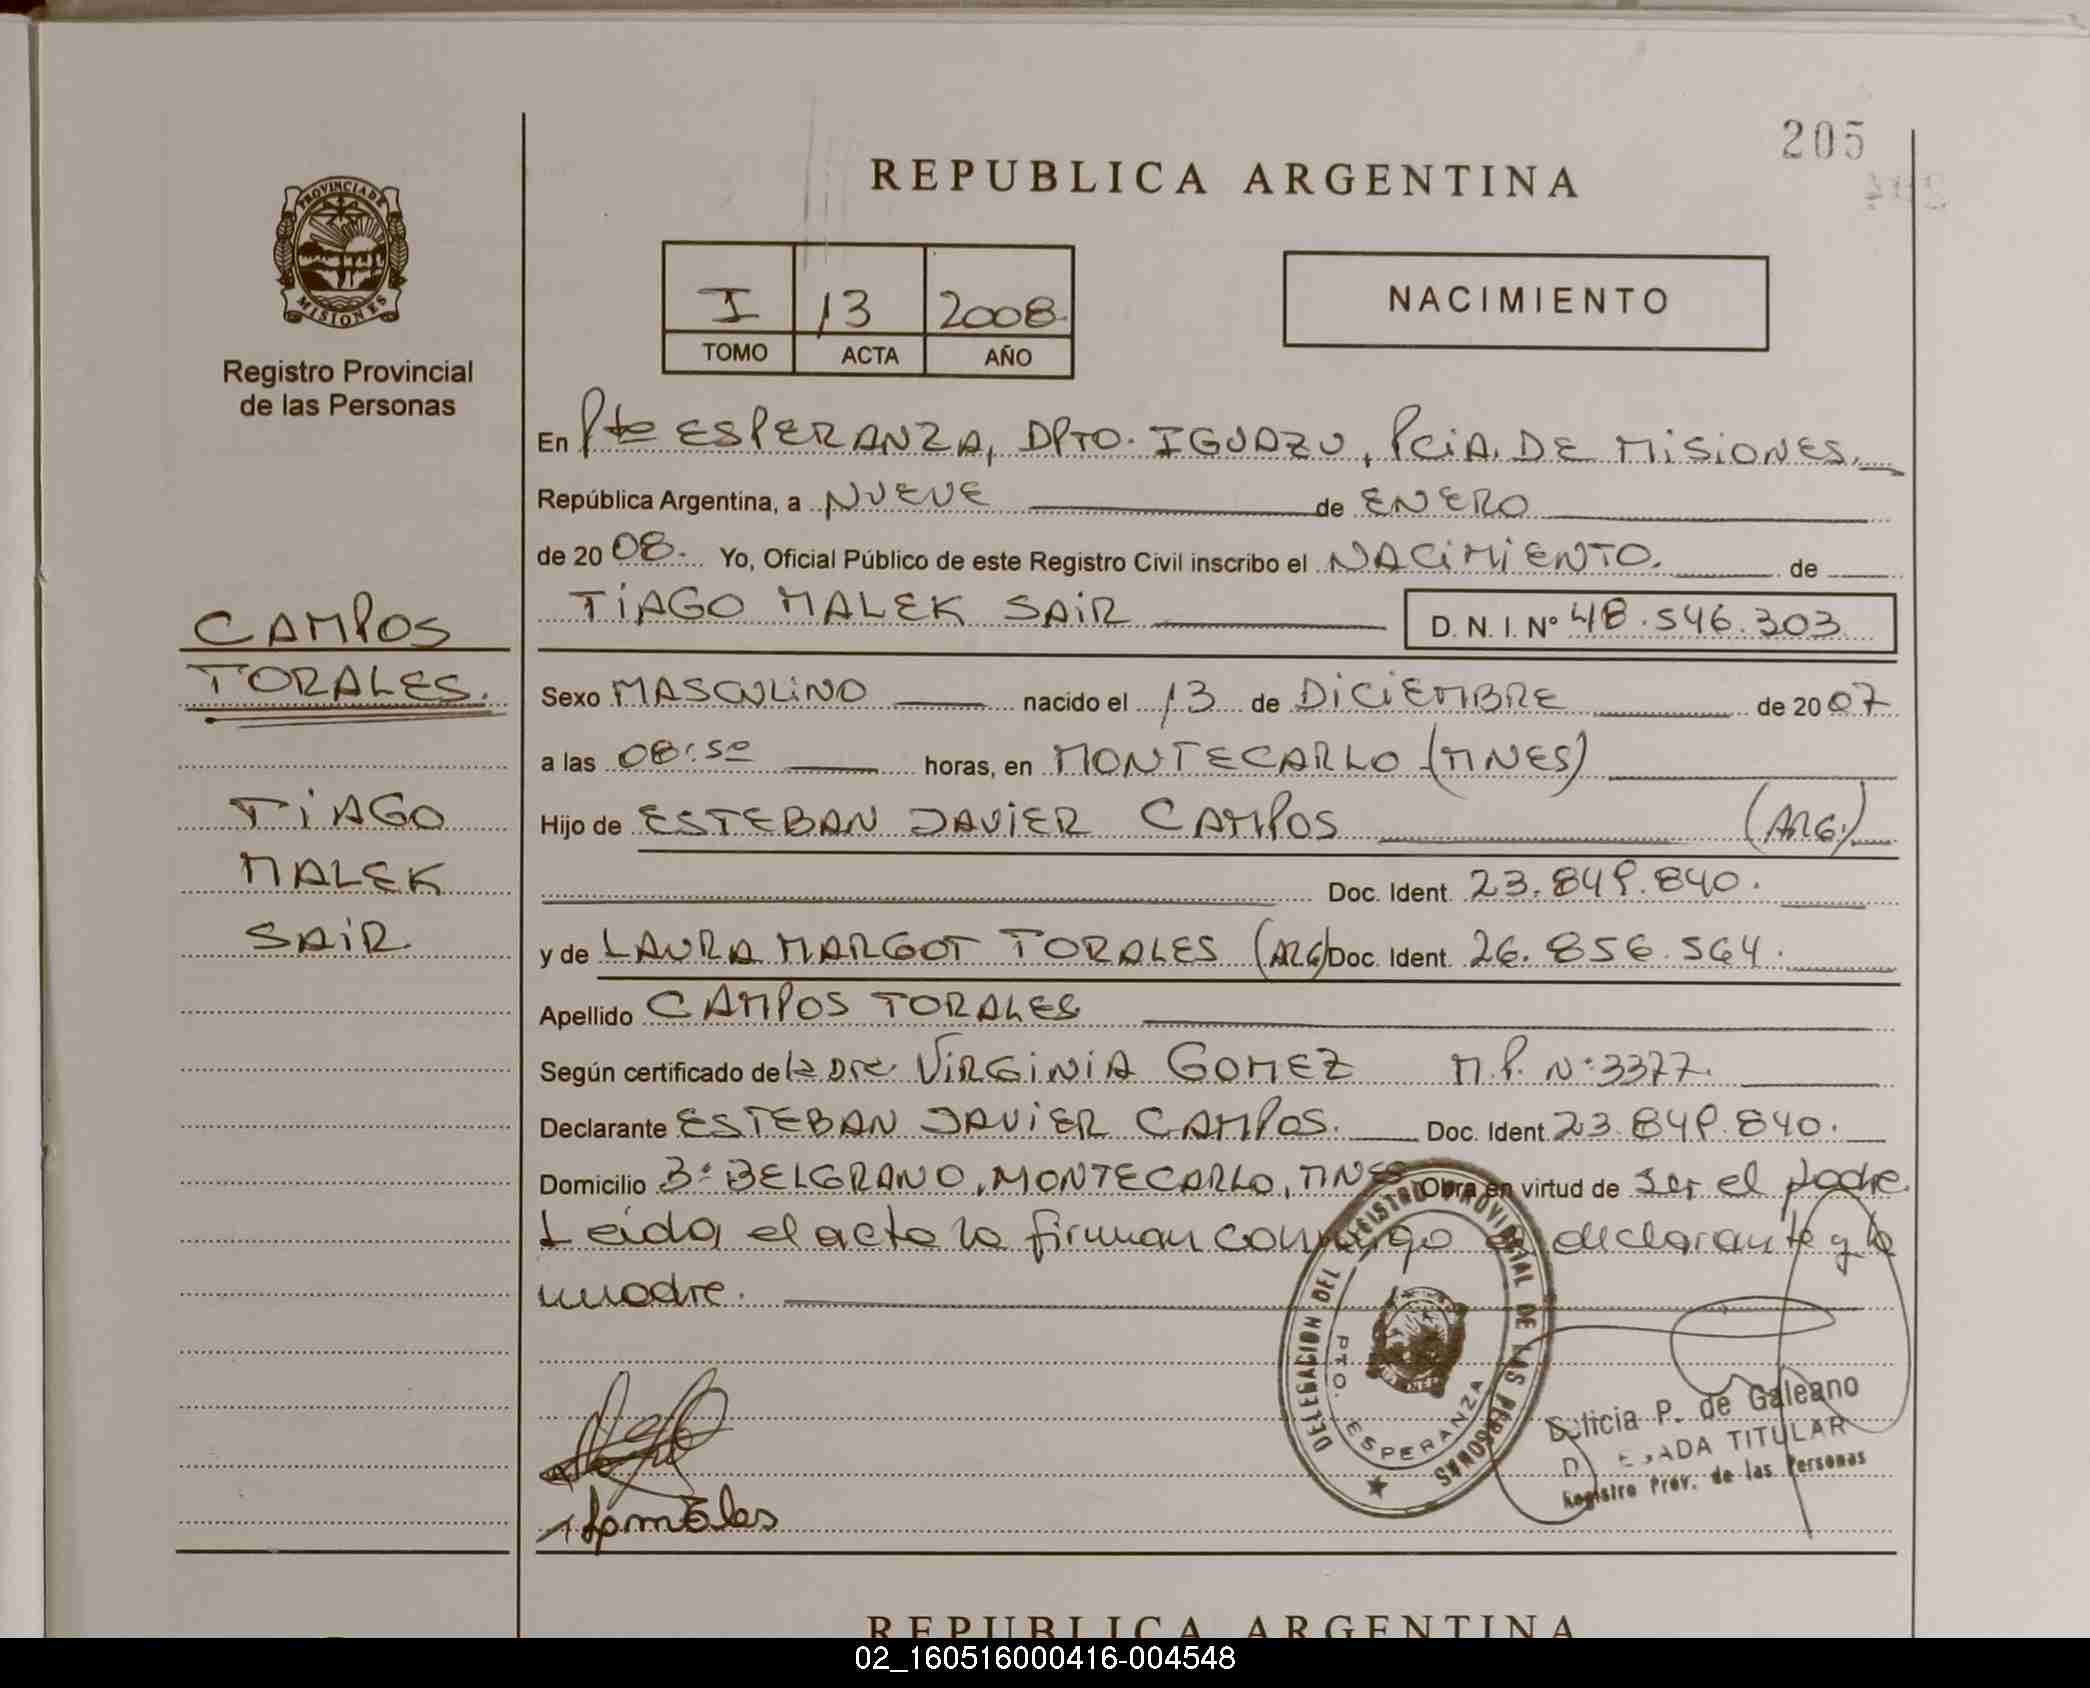 205
REPUBLICA ARGENTINA
PROVINCIA DE
MISIONES
Registro Provincial
de las Personas
I 13 2008
TOMO ACTA AÑO
NACIMIENTO
En Pto ESPERANZA, DPTO. IGUAZU, PCIA. DE MISIONES.
República Argentina, a NUEVE de ENERO
de 2008. Yo, Oficial Público de este Registro Civil inscribo el NACIMIENTO. de
TIAGO MALEK SAIR D. N. I. Nº 48.546.303
CAMPOS
TORALES.
TIAGO
MALEK
SAIR.
Sexo MASCULINO nacido el 13 de DICIEMBRE de 2007
a las 08:50 horas, en MONTECARLO (MNES)
Hijo de ESTEBAN JAVIER CAMPOS (ARG.)
Doc. Ident. 23.849.840.
y de LAURA MARGOT TORALES (ARG) Doc. Ident. 26.856.564.
Apellido CAMPOS TORALES
Según certificado de la Dra. VIRGINIA GOMEZ M.P. Nº 3377.
Declarante ESTEBAN JAVIER CAMPOS. Doc. Ident. 23.849.840.
Domicilio Bº BELGRANO, MONTECARLO, MNES Obra en virtud de ser el padre.
Leida el acta la firman conmigo el declarante y la
madre.
DELEGACION DEL REGISTRO PROVINCIAL DE LAS PERSONAS
PTO. ESPERANZA
P. de Galeano
TITULAR
Registro Prov. de las Personas
REPUBLICA ARGENTINA
02_160516000416-004548